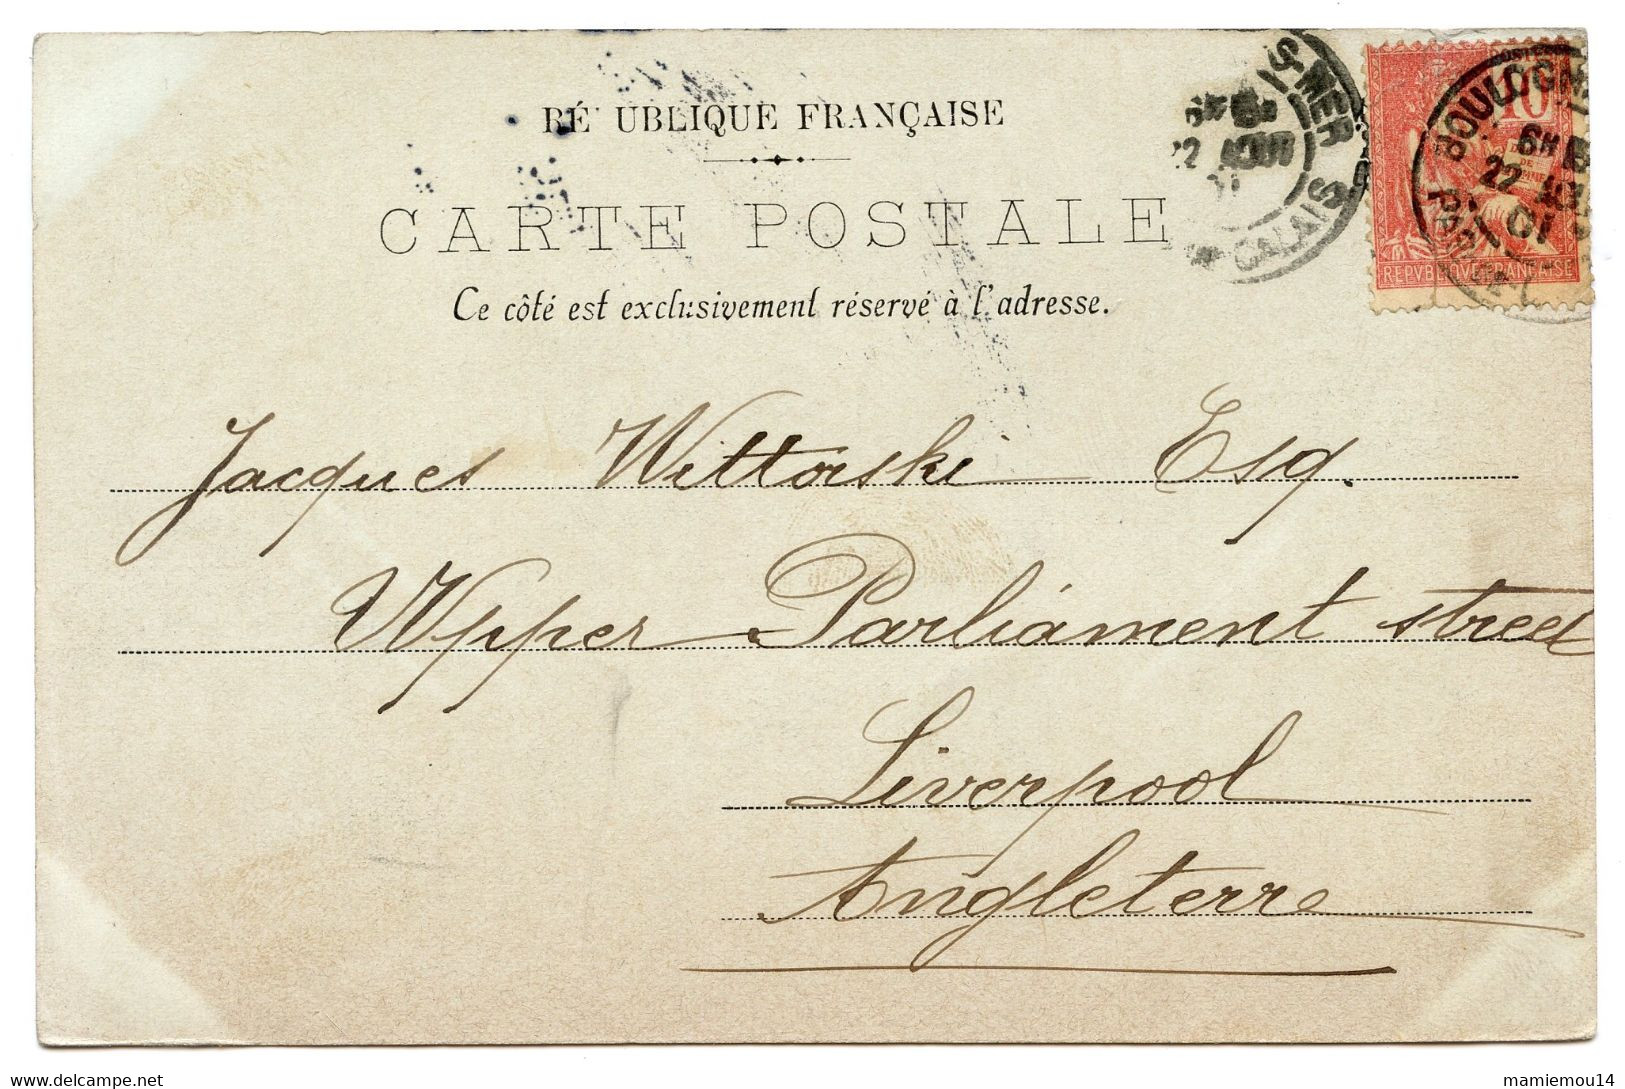 RÉ UBLIQUE FRANÇAISE
CARTE POSTALE
Ce côté est exclusivement réservé à l'adresse.
S-MER
22 AOUT
CALAIS
10
BOULOGNE
6H
22 AOUT
01
REPVBLIQVE FRANÇAISE
Jacques Wittorski Esq.
Upper Parliament street
Liverpool
Angleterre
www.delcampe.net
mamiemou14